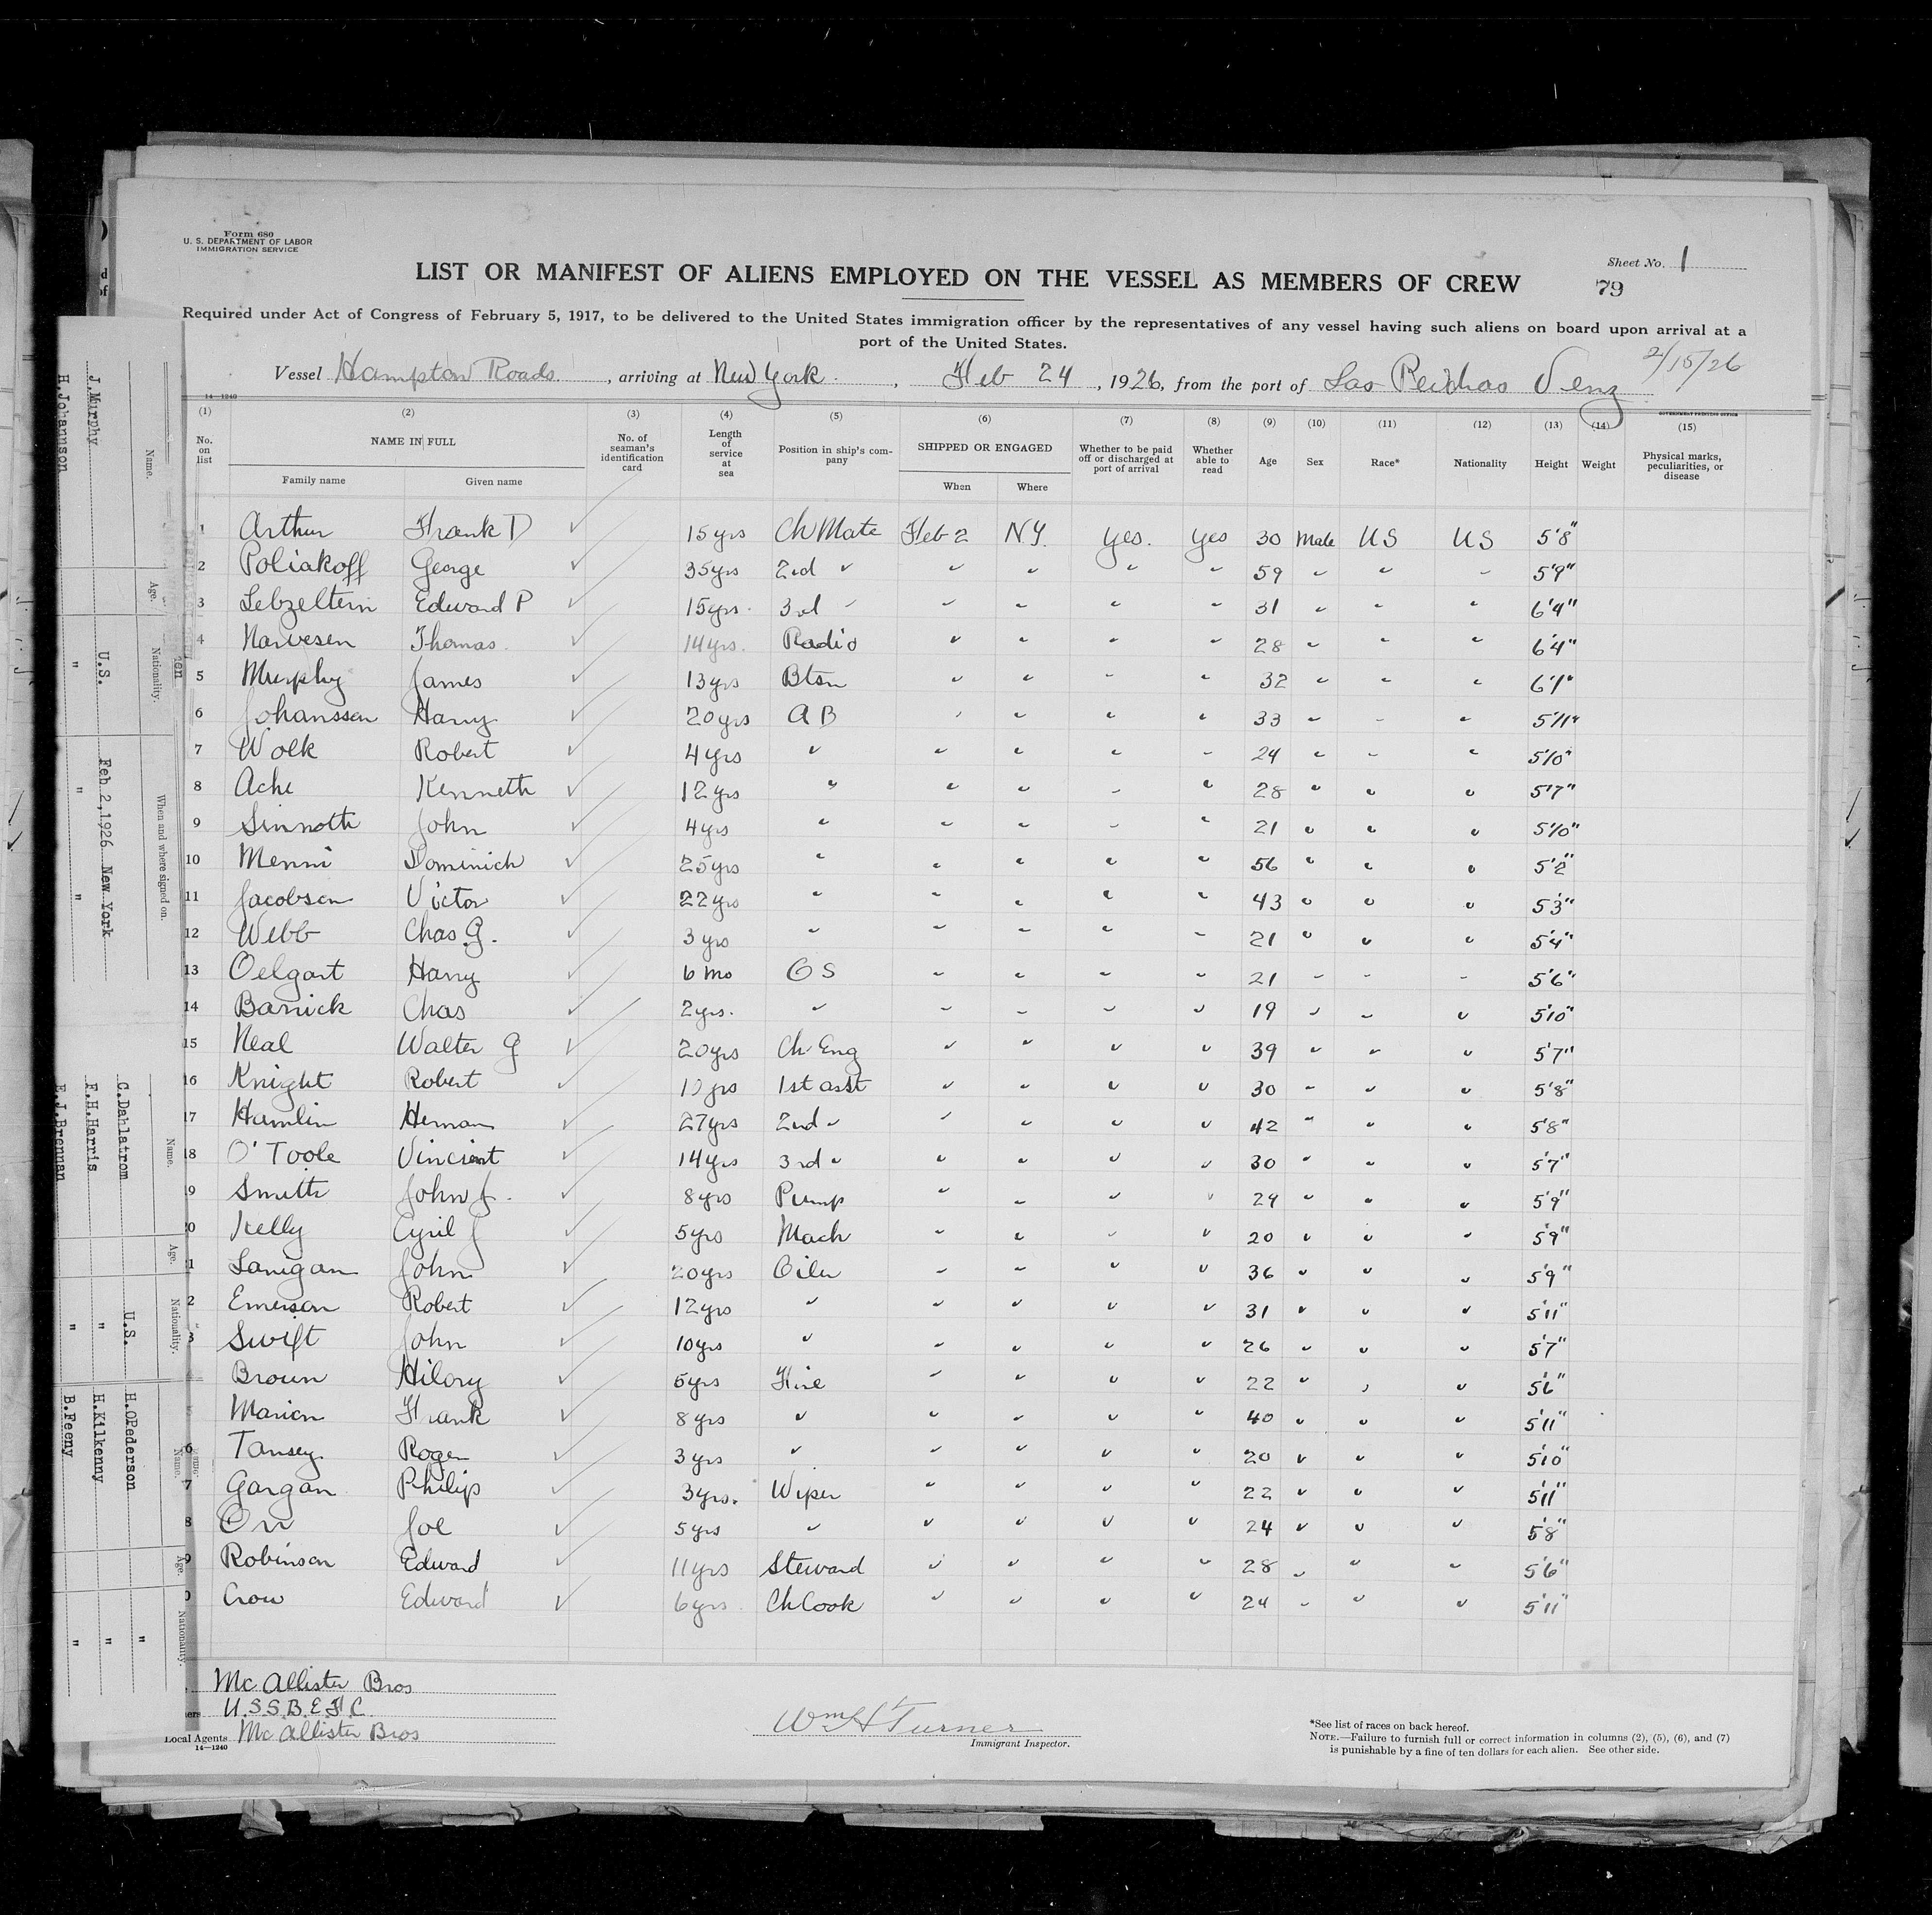 Form 680
U. S. DEPARTMENT OF LABOR
IMMIGRATION SERVICE
Sheet No. 1
LIST OR MANIFEST OF ALIENS EMPLOYED ON THE VESSEL AS MEMBERS OF CREW
79
Required under Act of Congress of February 5, 1917, to be delivered to the United States immigration officer by the representatives of any vessel having such aliens on board upon arrival at a
port of the United States.
2/15/26
Vessel Hampton Roads, arriving at New York, Feb 24, 1926, from the port of Las Venz
14—1240
GOVERNMENT PRINTING OFFICE
(1) (2) (3) (4) (5) (6) (7) (8) (9) (10) (11) (12) (13) (14) (15)
No. on list NAME IN FULL No. of seaman's identification card Length of service at sea Position in ship's company SHIPPED OR ENGAGED Whether to be paid off or discharged at port of arrival Whether able to read Age Sex Race* Nationality Height Weight Physical marks, peculiarities, or disease
Family name Given name When Where
1 Arthur Frank D ✓ 15 yrs Ch Mate Feb 2 N.Y. Yes. Yes 30 Male US US 5'8"
2 Poliakoff George ✓ 35 yrs 2nd " " " " " 59 " " " 5'9"
3 Lebzeltern Edward P ✓ 15 yrs. 3rd " " " " " 31 " " " 6'4"
4 Narvesen Thomas ✓ 14 yrs. Radio " " " " 28 " " " 6'4"
5 Murphy James ✓ 13 yrs Btsn " " " " 32 " " " 6'1"
6 Johanssen Harry ✓ 20 yrs A B " " " " 33 " " " 5'11"
7 Wolk Robert ✓ 4 yrs " " " " " 24 " " " 5'10"
8 Ache Kenneth ✓ 12 yrs " " " " " 28 " " " 5'7"
9 Sinnoth John ✓ 4 yrs " " " " " 21 " " " 5'10"
10 Menni Dominich ✓ 25 yrs " " " " " 56 " " " 5'2"
11 Jacobsen Victor ✓ 22 yrs " " " " " 43 " " " 5'3"
12 Webb Chas G. ✓ 3 yrs " " " " " 21 " " " 5'4"
13 Oelgart Harry ✓ 6 mo O S " " " " 21 " " " 5'6"
14 Barnick Chas ✓ 2 yrs. " " " " " 19 " " " 5'10"
15 Neal Walter G ✓ 20 yrs Ch Eng " " " " 39 " " " 5'7"
16 Knight Robert ✓ yrs 1st asst " " " " 30 " " " 5'8"
17 Hamlin Heman ✓ 27 yrs 2nd " " " " " 42 " " " 5'8"
18 O'Toole Vincient ✓ 14 yrs 3rd " " " " " 30 " " " 5'7"
9 Smith John J. ✓ 8 yrs Pump " " " " 24 " " " 5'9"
0 Kelly Cyril J ✓ 5 yrs Mach " " " " 20 " " " 5'9"
1 Lanigan John ✓ 20 yrs Oiler " " " " 36 " " " 5'9"
2 Emerson Robert ✓ 12 yrs " " " " " 31 " " " 5'11"
3 Swift John ✓ 10 yrs " " " " " 26 " " " 5'7"
Brown Hilory ✓ 5 yrs Fire " " " " 22 " " " 5'6"
5 Marion Frank ✓ 8 yrs " " " " " 40 " " " 5'11"
6 Tansey Roger ✓ 3 yrs " " " " " 20 " " " 5'10"
7 Gargan Philip ✓ 3 yrs. Wiper " " " " 22 " " " 5'11"
8 Orr Joe ✓ 5 yrs " " " " " 24 " " " 5'8"
9 Robinson Edward ✓ 11 yrs Steward " " " " 28 " " " 5'6"
0 Crow Edward ✓ 6 yrs. Ch Cook " " " " 24 " " " 5'11"
McAllister Bros
ners U.S.S.B.E.F.C.
Local Agents McAllister Bros
14—1240
Wm H Turner
Immigrant Inspector.
*See list of races on back hereof.
NOTE.—Failure to furnish full or correct information in columns (2), (5), (6), and (7)
is punishable by a fine of ten dollars for each alien. See other side.
Name. Age. Nationality. When and where signed on.
J.Murphy U.S. Feb 2,1926 New York
H.Johannson " " "
Name. Age. Nationality.
C.Dahlstrom U.S.
F.H.Harris "
E.J.Brennan "
Name. Age. Nationality.
H.OPederson "
H.Kilkenny "
B.Feeny "